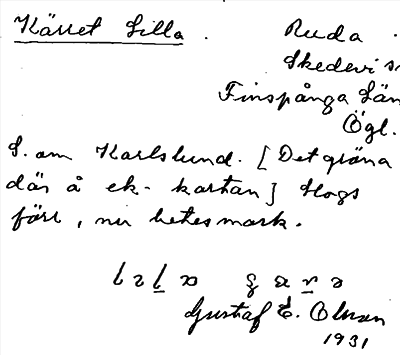 Kärret Lilla. Ruda.
Skedevi s
Finspånga Län
Ögl.
S. om Karlslund. [Det gröna
där å ek. kartan] Hogs
förr, nu betesmark.
Gustaf E. Olsson
1931